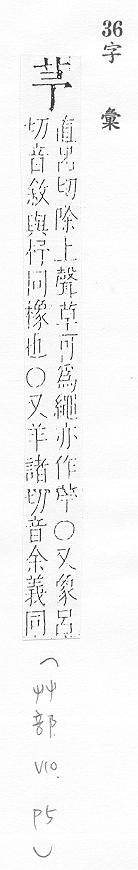 36
字彙
芧
直呂切除上聲草可為繩亦作苧○又象呂
切音敘與杼同橡也○又羊諸切音余義同
(艸部 V10. P5)